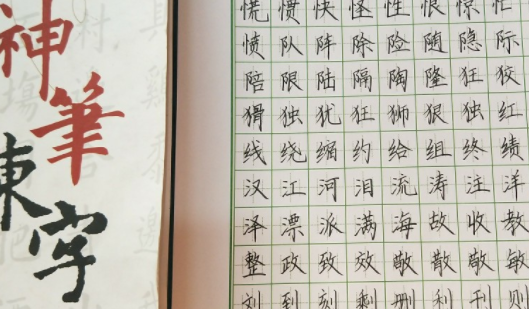 神筆
練字
慌惯快怪性恨惊忙
愤队阵除险随隐际
陪限陆隔陶隆狂狡
猾独犹狂狮狠独红
线绕缩约给组终绩
汉江河泪流涛注洋
泽漂派满海故收教
整政致效敬散敌敏
刘到刻剩刑利刊则